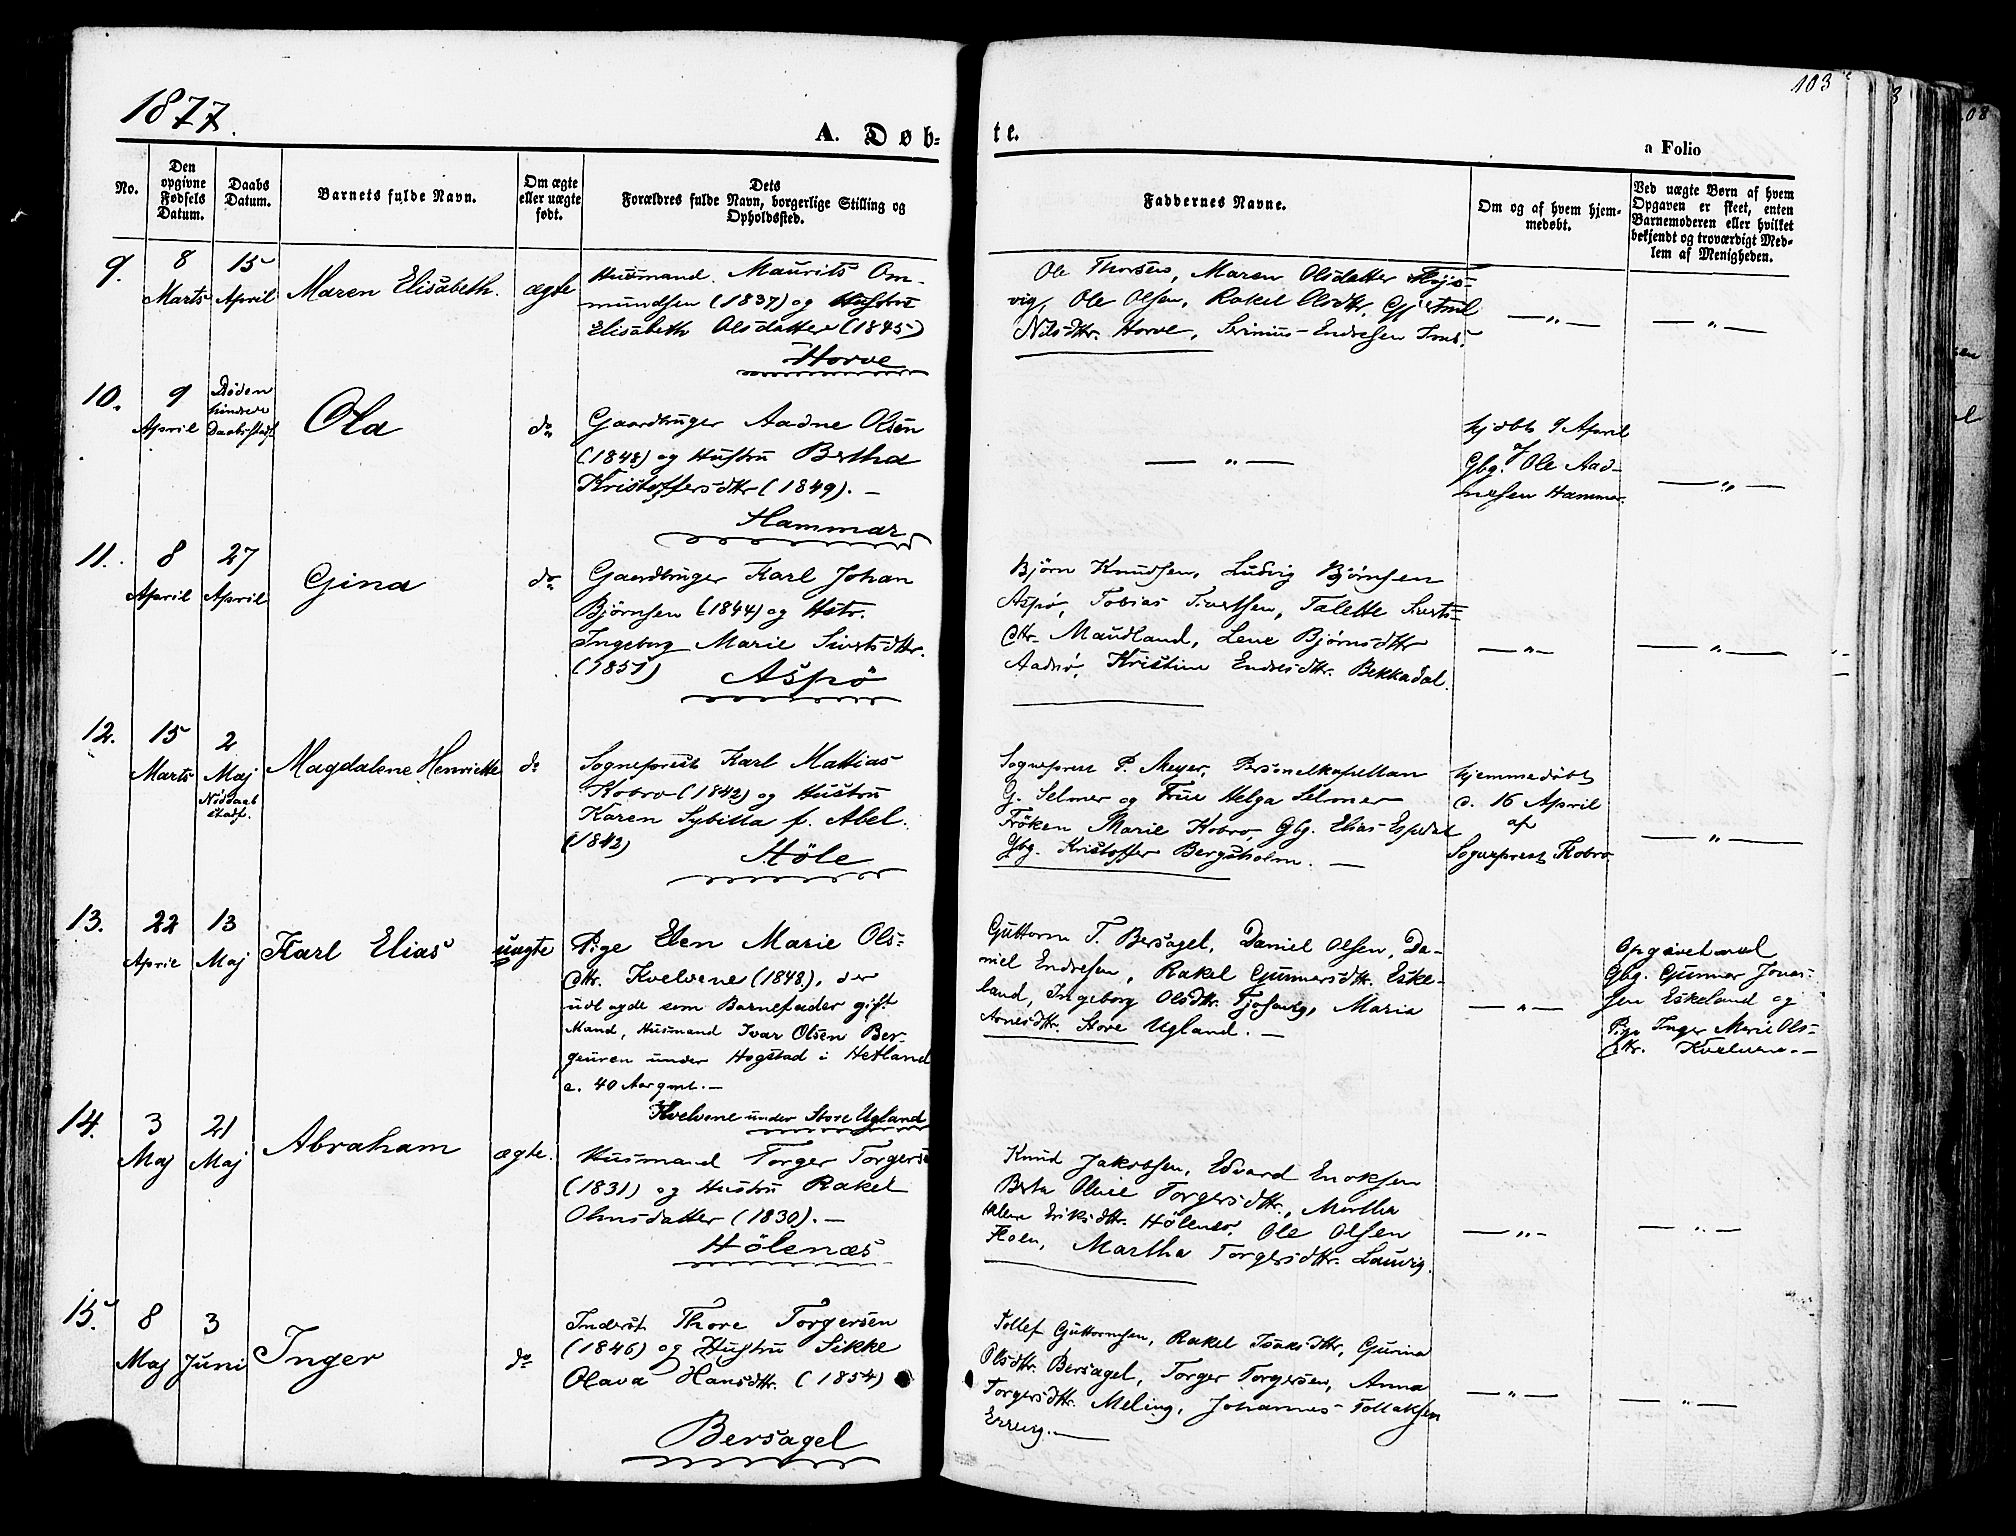 103
1877.
A. Døb-
te.
a Folio
No.
Den
opgivne
Fødsels
Datum.
Daabs
Datum.
Barnets fulde Navn.
Om ægte
eller uægte
født.
Dets
Forældres fulde Navn, borgerlige Stilling og
Opholdssted.
Faddernes Navne.
Om og af hvem hjem-
medøbt.
Ved uægte Børn af hvem
Opgaven er skeet, enten
Barnemoderen eller hvilket
bekjendt og troværdigt Med-
lem af Menigheden.
9.
8
Marts
15
April
Maren Elisabeth.
ægte
Husmand. Maurits Om-
mundsen (1837) og Hustru
Elisabeth Olsdatter (1845)
Horve
Ole Thorsen, Maren Olsdatter
vig, Ole Olsen, Rakel Olsdtr,
Nilsdtr. Horve, Serinius Endresen Ims.
— " —
— " —
10.
9
April
Døden
hindrede
Daabsstadf.
Ola
do
Gaardbruger Aadne Olsen
(1848) og Hustru Bertha
Kristoffersdtr (1849). —
Hammar
— " —
hjdbt 9 April
af
Gbg. Ole Aad-
nesen Hammer.
— " —
11.
8
April
27
April
Gina
do
Gaardbruger Karl Johan
Bjørnsen (1844) og Hstr.
Ingeborg Marie Sivertsdtr.
(1851)
Aspø
Bjørn Knudsen, Ludvig Bjørnsen
Aspø, Tobias Sivertsen, Talette Siverts-
dtr. Maudland, Lene Bjørnsdtr
Aadnø, Kristine Endresdtr. Bekkadal.
— " —
— " —
12.
15
Marts
2
Maj
Nøddaab
stadf.
Magdalene Henriette
do
Sogneprest Karl Mathias
Kobro (1842) og Hustru
Karen Sybilla f. Abel.
(1842)
Höle
Sogneprest P. Meyer, Personelkapellan
G. Selmer og Frue Helga Selmer
Frøken Marie Kobro Gbg. Elias Espedal
Gbg. Kristoffer Bergsholm. —
hjemmedøbt
d. 16 April
af
Sogneprest Kobro
— " —
13.
22
April
13
Maj
Karl Elias
uægte
Pige Elen Marie Ols-
dtr. Kvelvene (1848), der
udlagde som Barnefader gift
Mand, Husmand Ivar Olsen Ber-
geuren under Hogstad i Hetland
c. 40 Aar gml. —
Kvelvene under Store Ugland
Guttorm T. Bersagel, Daniel Olsen, Da-
niel Endresen, Rakel Gunnersdtr. Eske-
land, Ingeborg Olsdtr. Tjøsang, Maria
Arnesdtr. Store Ugland. —
— " —
Opgivet ved
Gbg. Gunnar Jonas-
sen Eskeland og
Pige Inger Marie Ols-
dtr. Kvelvene. —
14.
3
Maj
21
Maj
Abraham
ægte.
Husmand Torger Torgers
(1831) og Hustru Rakel
Olmsdatter (1830). —
Hölenæs
Knud Jakobsen, Edvard Enoksen
Berta Olive Torgersdtr., Martha
Helene Eriksdtr. Hölenes, Ole Olsen
Holen, Martha Torgersdtr. Lauvig.
— " —
— " —
15.
8
Maj
3
Juni
Inger
do
Inderst Thore Torgersen
(1846) og Hustru Sikke
Olava Hansdtr. (1854)
Bersagel
Tollef Guttormsen, Rakel Isaksdtr, Gurina
Olsdtr. Bersagel, Torger Torgersen, Anna
Torgersdtr. Meling, Johannes Tollaksen
— " —
— " —